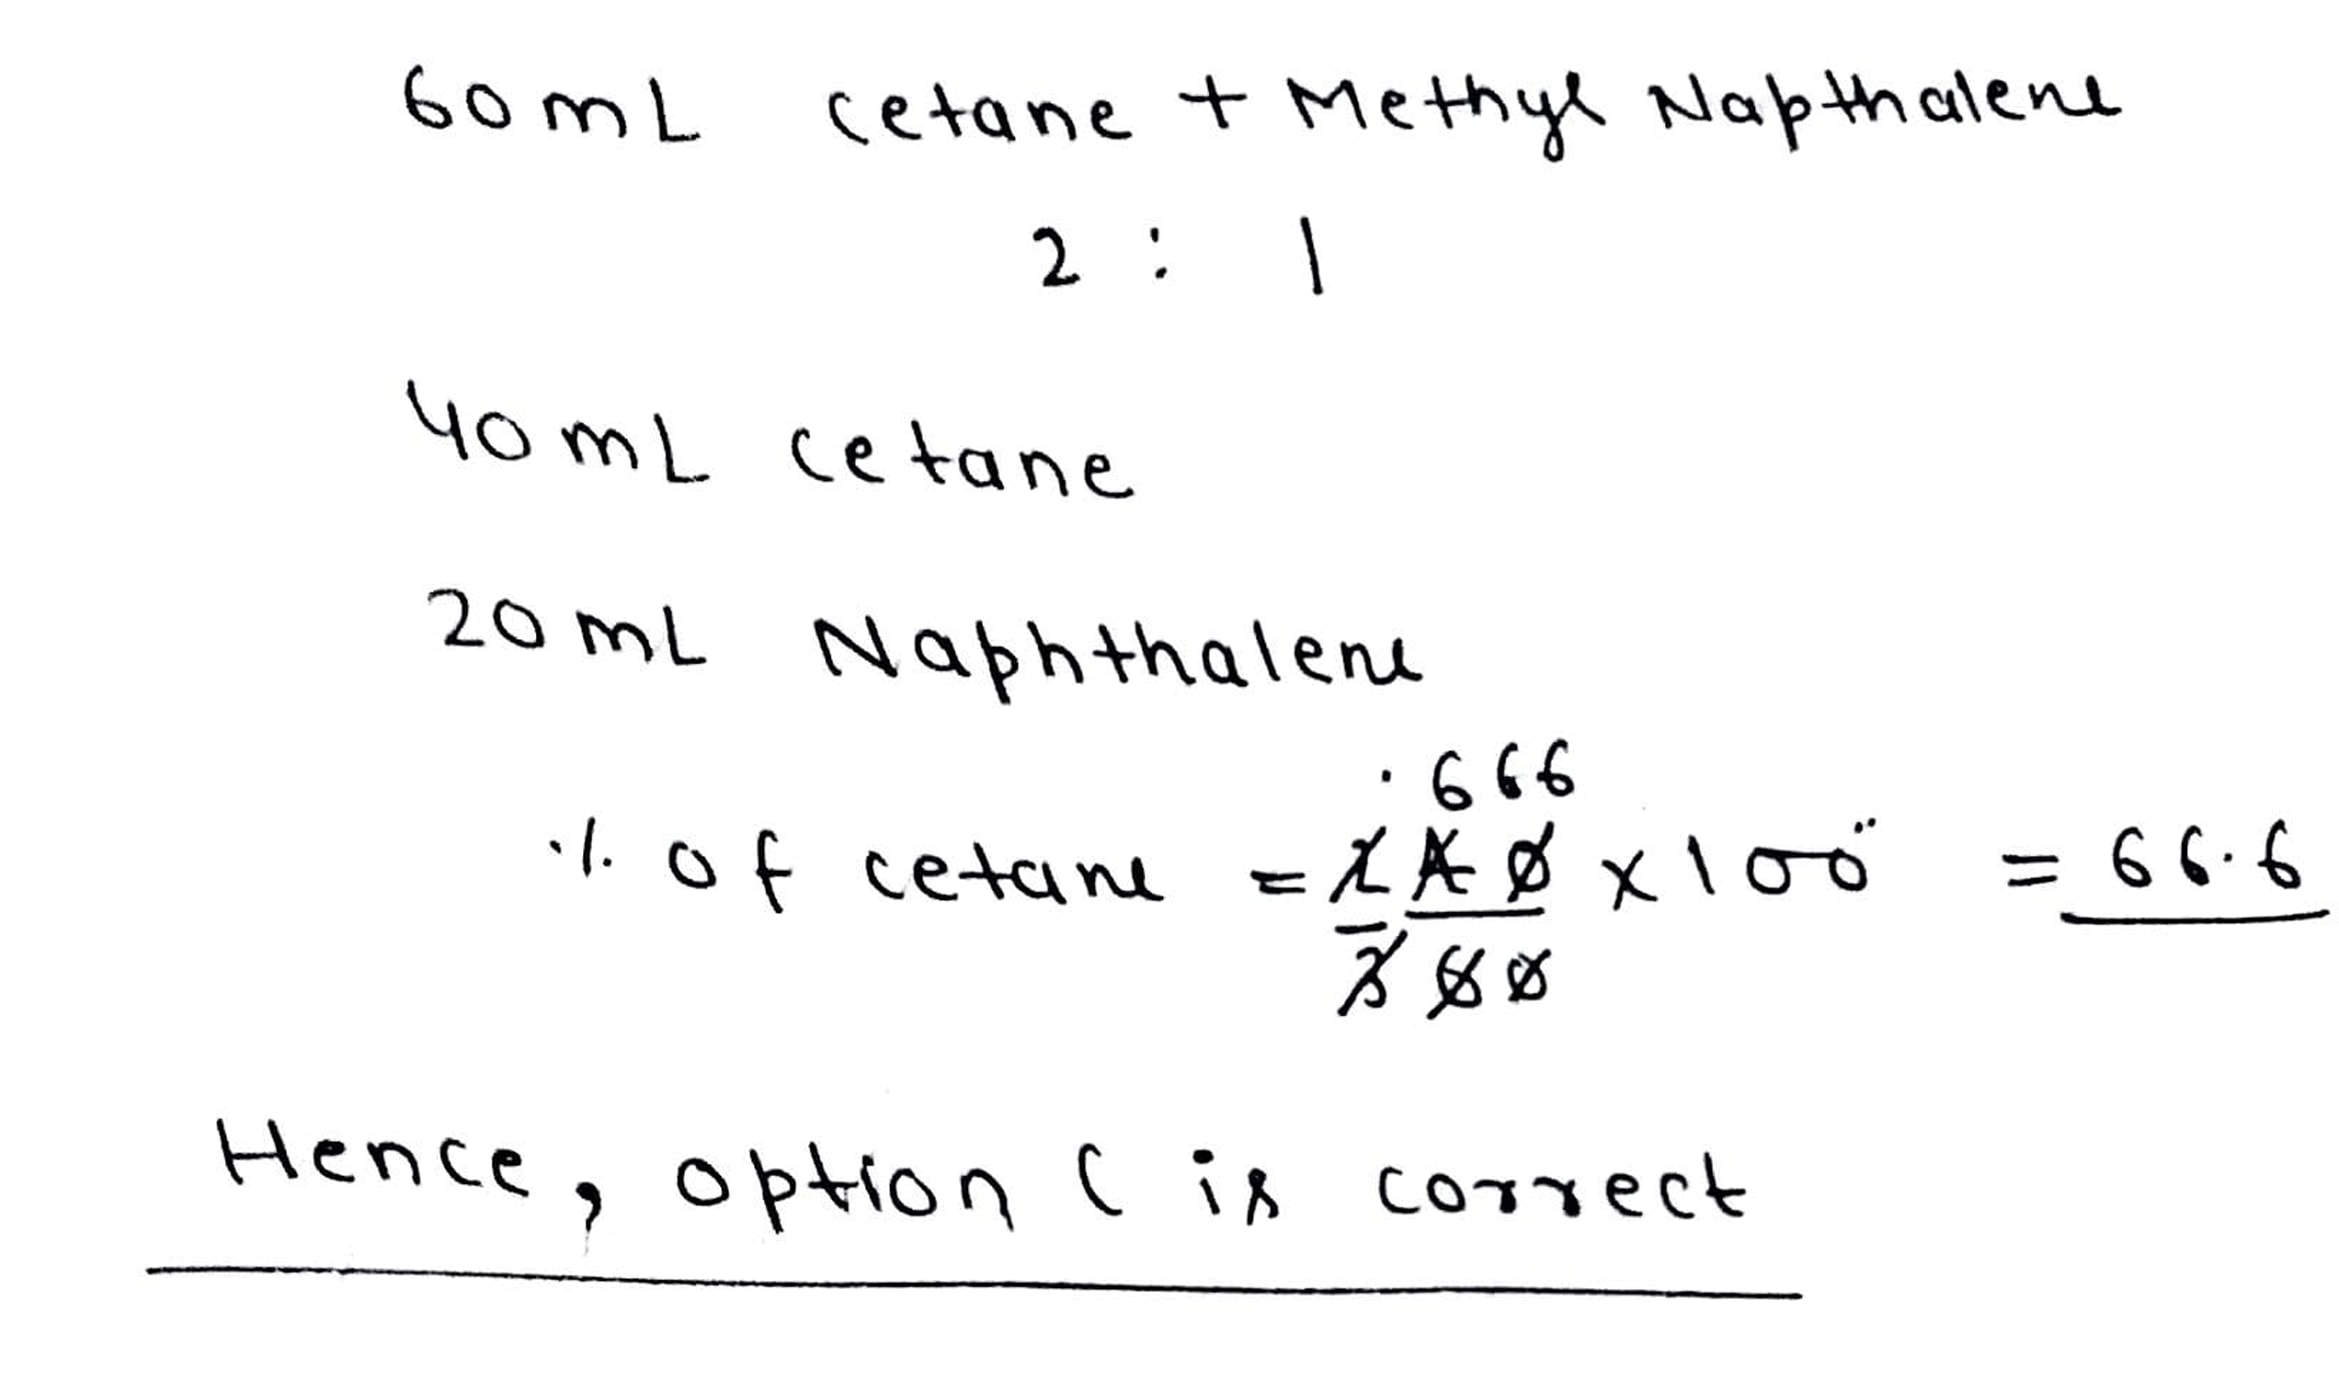 60 mL cetane + Methyl Napthalene
2 : 1
40 mL cetane
20 mL Naphthalene
.666
% of cetane = 2/3 40/60 x 100 = 66.6
Hence, option C is correct